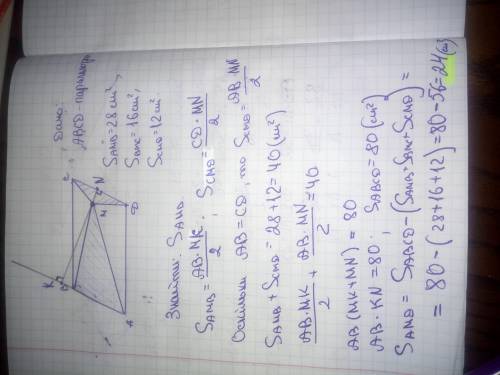 Дано:
ABCD-паралелогр
S_AMB=28 cm²,
S_BMC=16 cm²,
S_CMD=12 cm²
Знайти: S_AMD
S_AMB = AB·MK/2 ; S_CMD = CD·MN/2
Оскільки AB=CD, то S_CMD = AB·MN/2
S_AMB + S_CMD = 28+12=40 (cm²)
AB·MK/2 + AB·MN/2 = 40
AB (MK+MN) = 80
AB·KN=80; S_ABCD=80 (cm²)
S_AMD = S_ABCD - (S_AMB+S_BMC+S_CMD) =
= 80-(28+16+12)=80-56=24
K
B
C
N
M
D
A